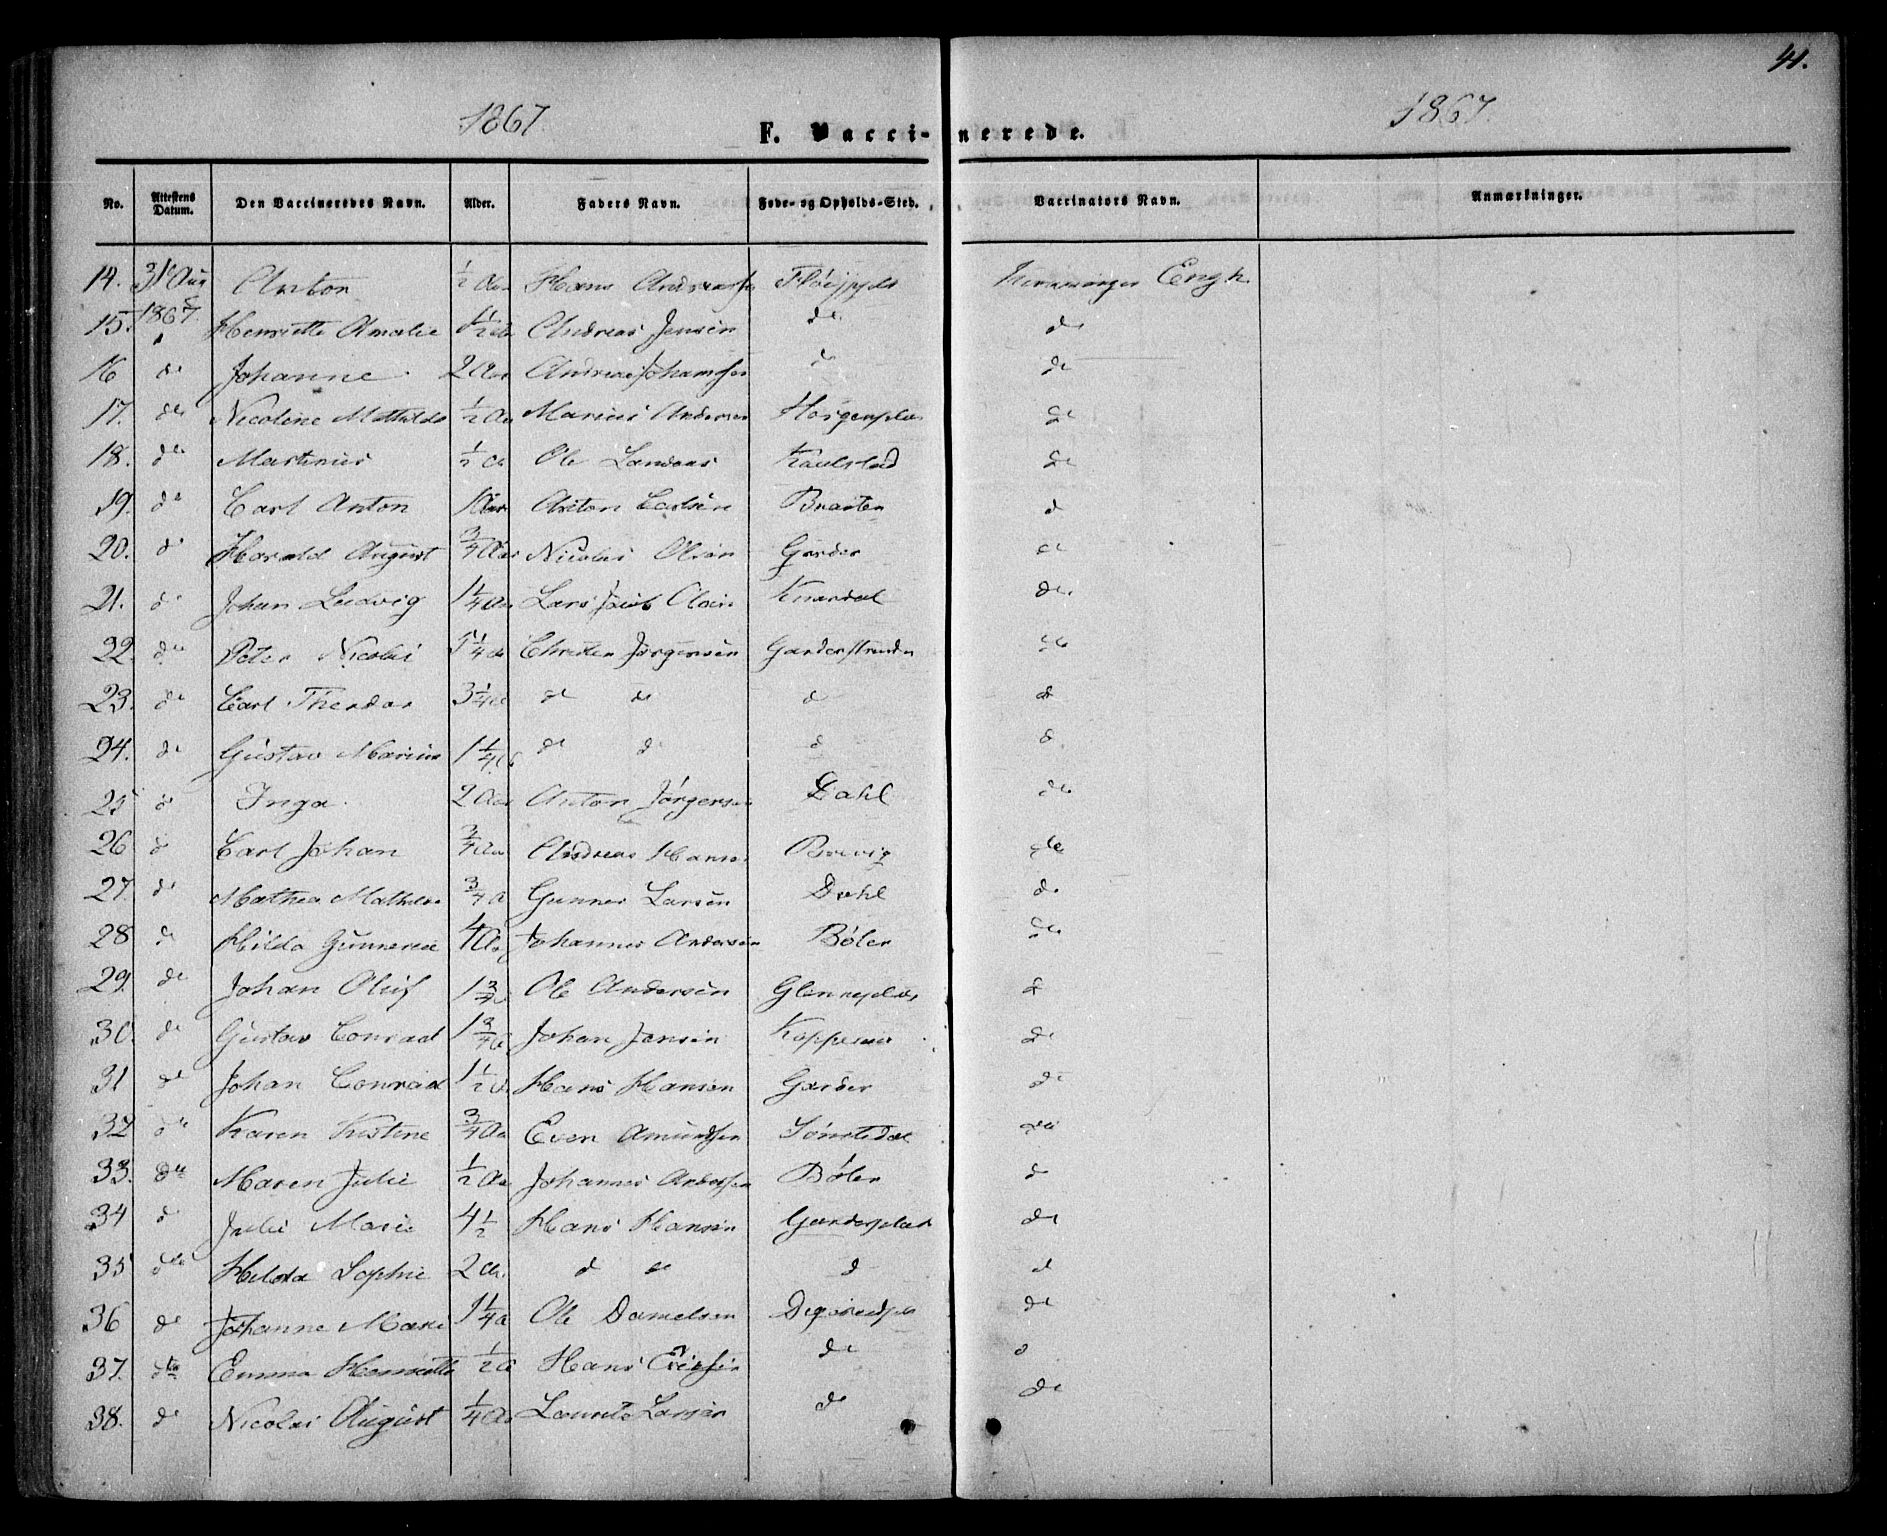 41.
1867. 1867.
F. Vacci-nerede.
No. Attestens Datum. Den Vaccineredes Navn. Alder. Faders Navn. Føde- og Opholds-Sted. Vaccinators Navn. Anmærkninger.
14. 31te Aug 1867. Anton 1/2 Aar Hans Engh
15. Henriette Amalie 1 1/2 Andreas Jensen do
16 do Johanne. 2 Aar Andreas Johansen do do
17. do Nicoline Mathilde 1/2 Aar Marius Andersen do
18. do Martinus 1/2 Aar Ole do
19. do Carl Anton 1 Aar Anton Carlsen Braaten do
20. do Harald August 3/4 Aar Nicolai Olsen Garder do
21. do Johan Ludvig 1 1/4 Aar Lars Jacob Olsen do
22. do Peter Nicolai 5 1/4 Aar Christen Jørgensen do
23. do Carl Theodor 3 1/4 do do do do
24. do Gustav Marius 1 1/4 do do do do
25 do Inga. 2 Aar Anton Jørgensen Dahl do
26 do Carl Johan 3/4 Aar Andreas Hansen Brevig do
27. do Mathea Mathilde 3/4 A Gunner Larsen Dahl do
28 do Hilda Gunnerea 4 Aar Johannes Andersen Bøler do
29. do Johan Oluf 1 3/4 Ole Andersen Glenneplds do
30. do Gustav Conrad 1 3/4 Johan Jensen do
31 do Johan Conrad 1 1/2 Hans Hansen Garder do
32 do Karen Kristine 3/4 Aa Even Amundsen do
33. do Maren Julie 1/2 Aa Johannes Andersen Bøler do
34 do Julie Marie 4 1/2 Hans Hansen Garderplad do
35 do Hilda Sophie 2 Aar do do do do
36 do Johanne Marie 1 1/4 a Ole Danielsen do
37. do Emma Henriette 1/2 A Hans do do
38. do Nicolai August 1/4 Aa Larsen do do